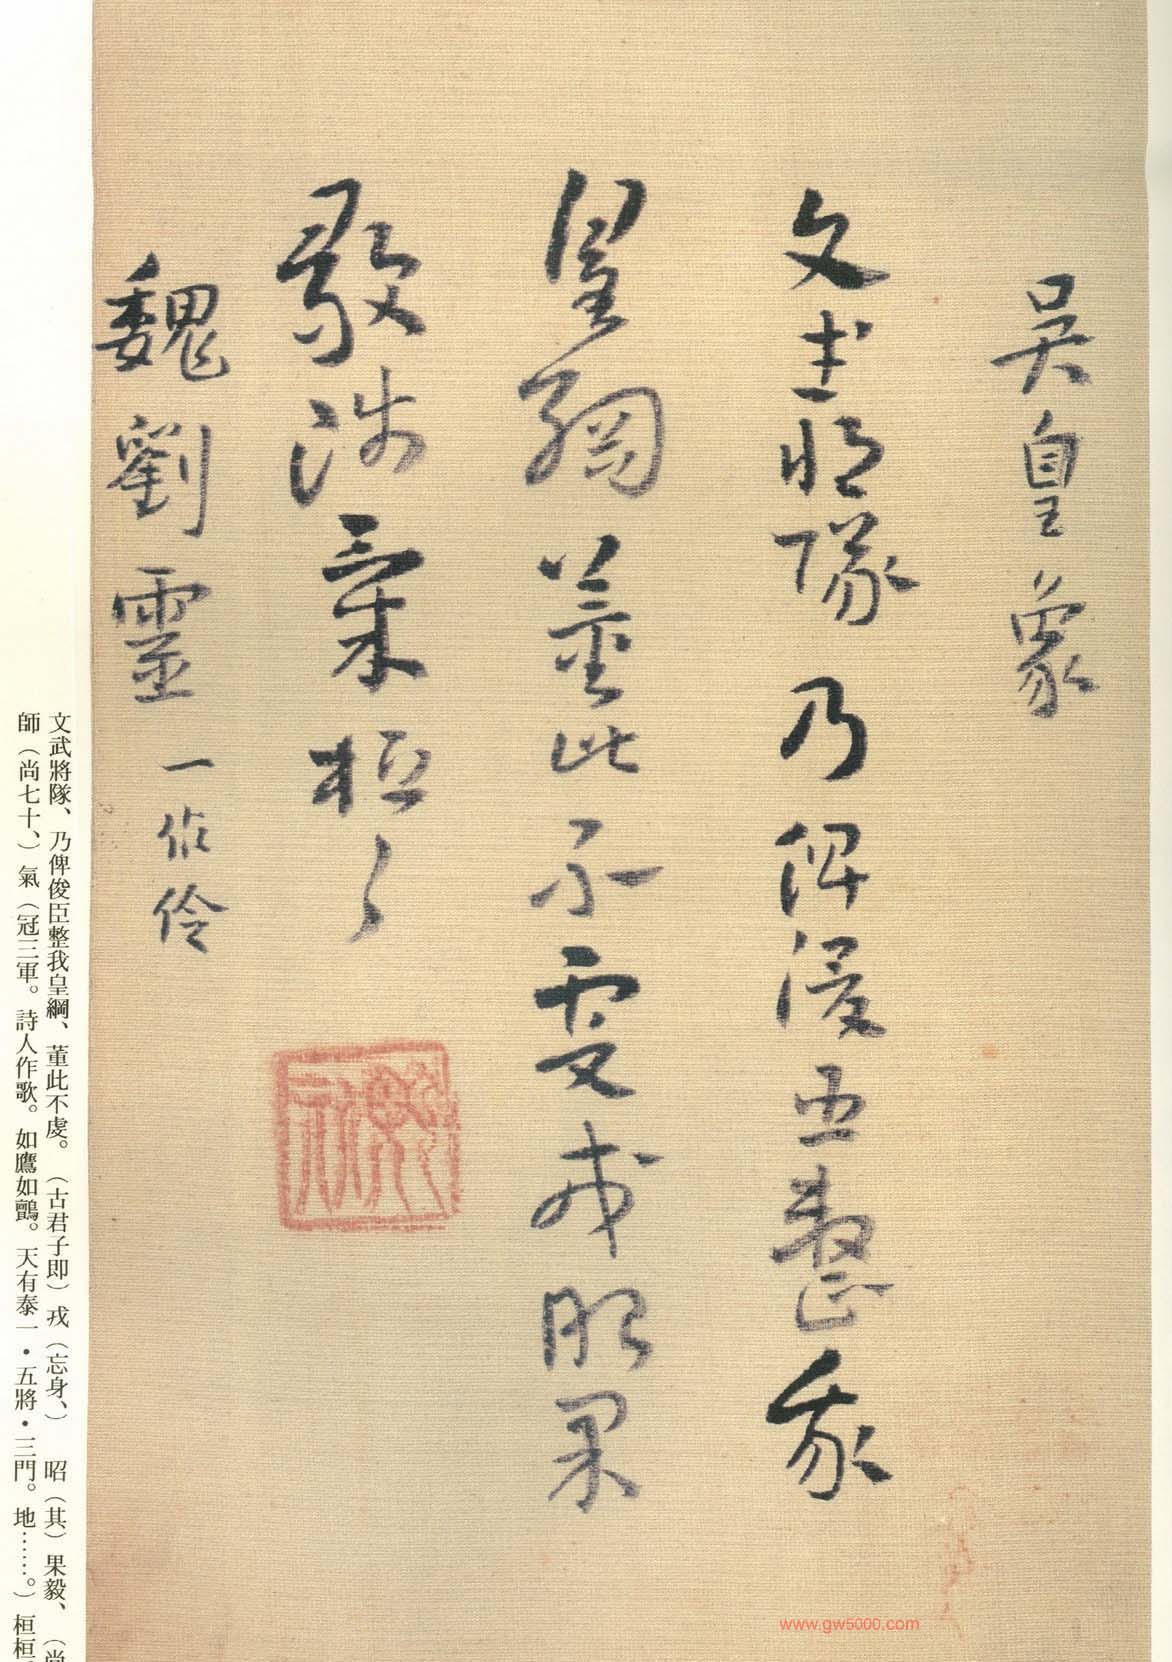 吳皇象
文武將隊乃俾俊臣整我
皇綱董此不虔戎昭果
毅師氣桓〻
魏劉靈一作伶
文武將隊、乃俾俊臣整我皇綱、董此不虔。（古君子即）戎（忘身、）昭（其）果毅、（尚
師（尚七十、）氣（冠三軍。詩人作歌。如鷹如鸇。天有泰一・五將・三門。地……。）桓桓
www.gw5000.com